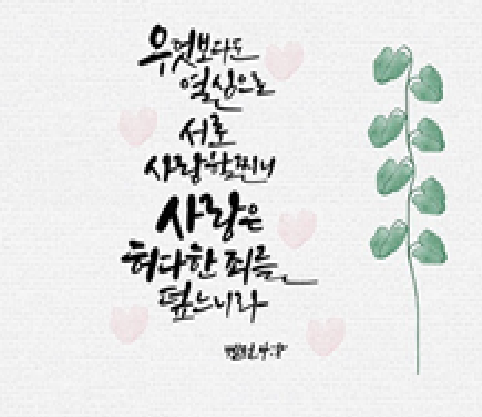 무엇보다도
열심으로
서로
사랑할찌니
사랑은
허다한 죄를
덮느니라
벧전 4:8